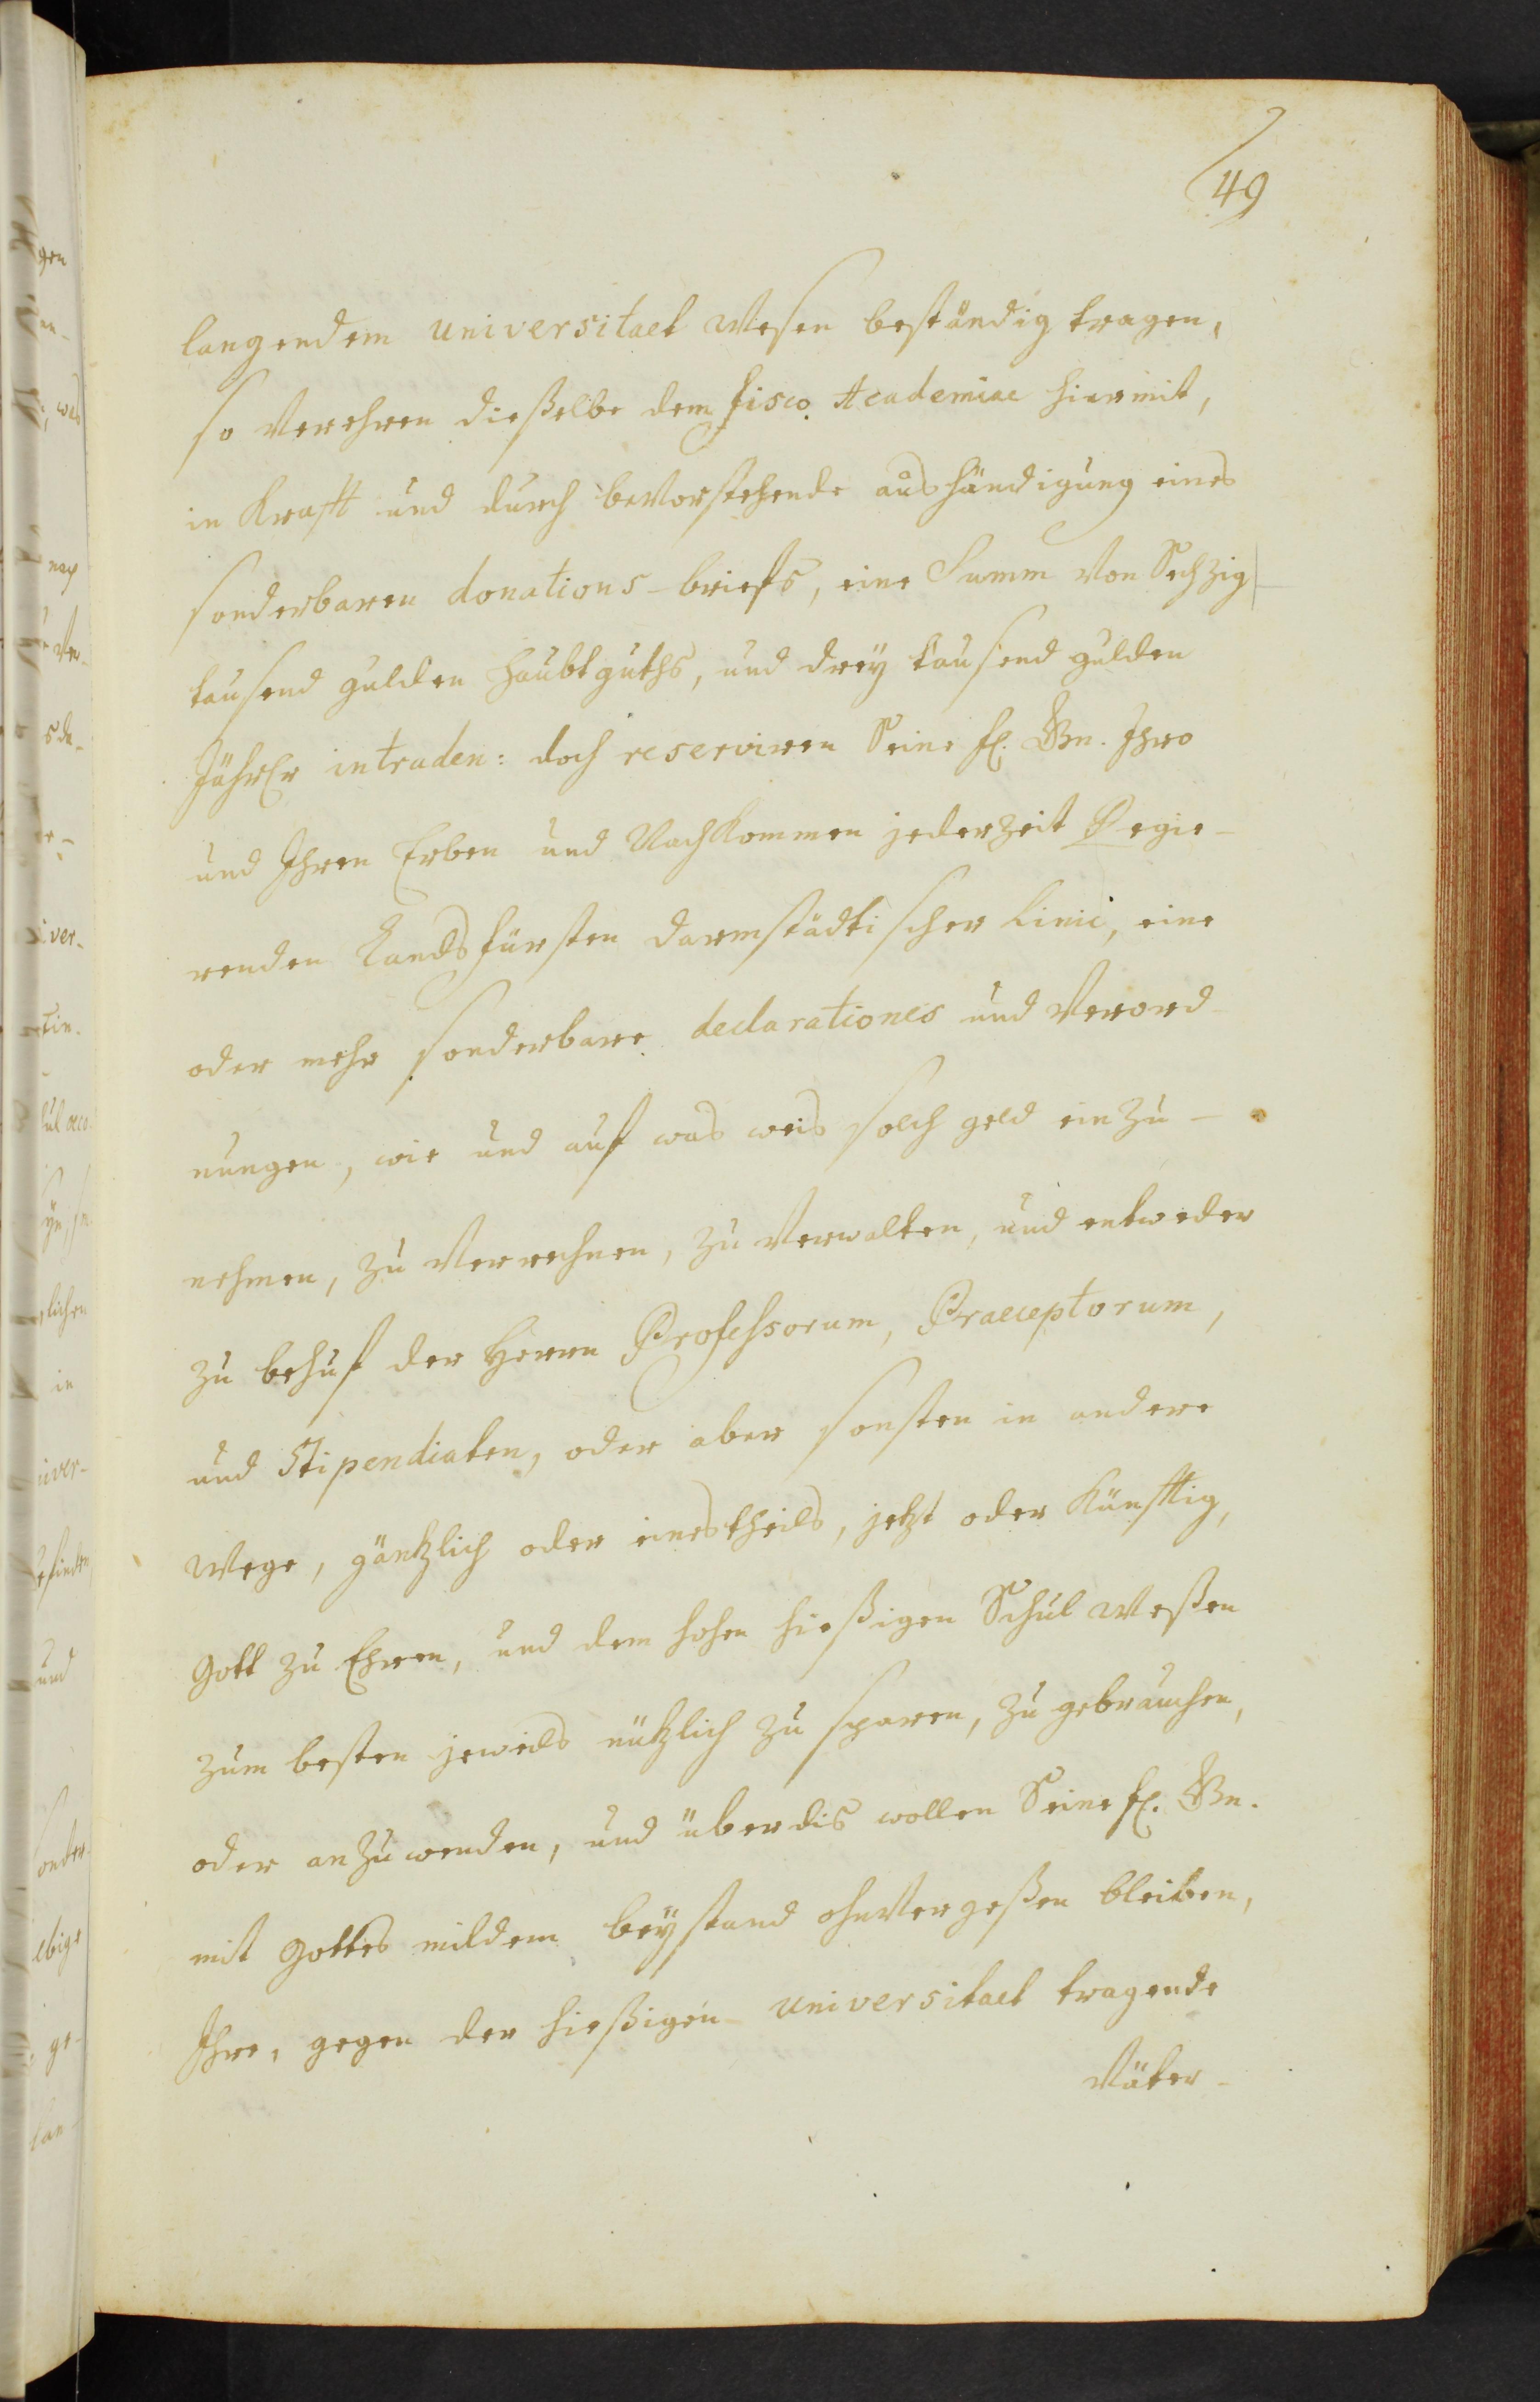 49
langendem Universitaet Wesen beständig tragen,
so Verehren dieselbe dem fisco Academiae hiermit,
in Krafft und durch beVorstehende aushändigung eines
sonderbaren donations-briefs, eine Summ Von Sechzig
tausend gulden Haubtguths, und dreÿ tausend gulden
Jährlr intraden: doch reserviren Seine fl. Gn. Ihro
und Ihren Erben und NachKommen jederzeit Regie-
renden Landsfürsten darmstädtischer Linie, eine
oder mehr sonderbare declarationes und Verord-
nungen, wie und auf was weis solch geld einzu-
nehmen, zu Verrechnen, zu Verwalten, und entweder
zu behuf der Herrn Professorum, Praeceptorum,
und Stipendiaten, oder aber sonsten in andere
Wege, gäntzlich oder einestheils, jetzt oder Künfftig,
Gott zu Ehren, und dem hohen hießigen Schul Weßen
zum besten jeweils nützlich zu sparen, zu gebrauchen,
oder anzuwenden, und überdis wollen Seine fl. Gn.
mit Gottes mildem beÿstand ohnVergeßen bleiben,
Ihre, gegen der hießigen Universitaet tragende
Väter-